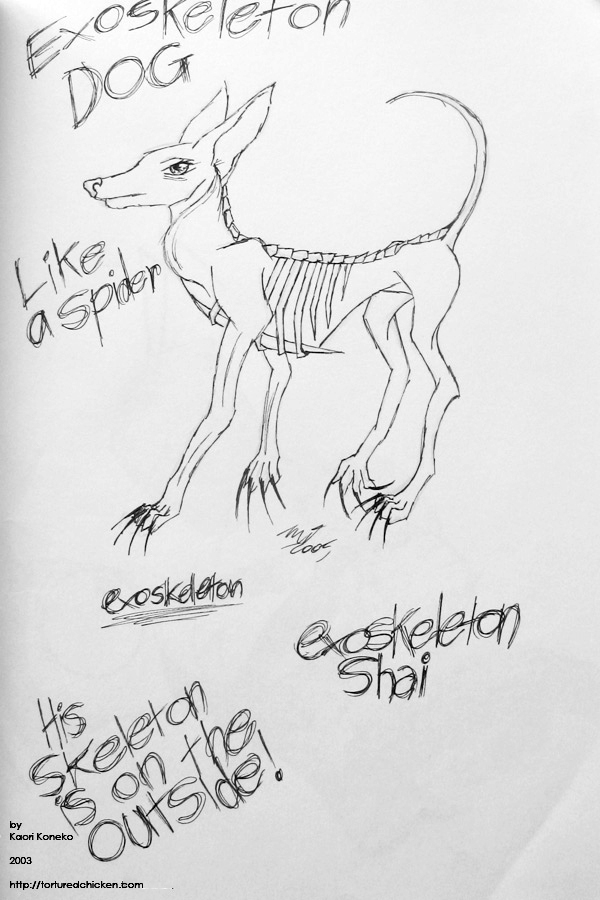 Exoskeleton
DOG
Like
a spider
exoskeleton
exoskeleton
Shai
His
skeleton
is on the
outside!
by
Kaori Koneko
2003
http://torturedchicken.com